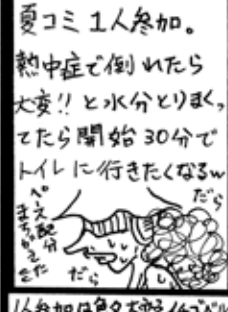 夏コミ1人参加。
熱中症で倒れたら
大変!!と水分とりまくっ
てたら開始30分で
トイレに行きたくなるw
ペース配分
まちがえてた
だら
だら
1人参加は色々大変